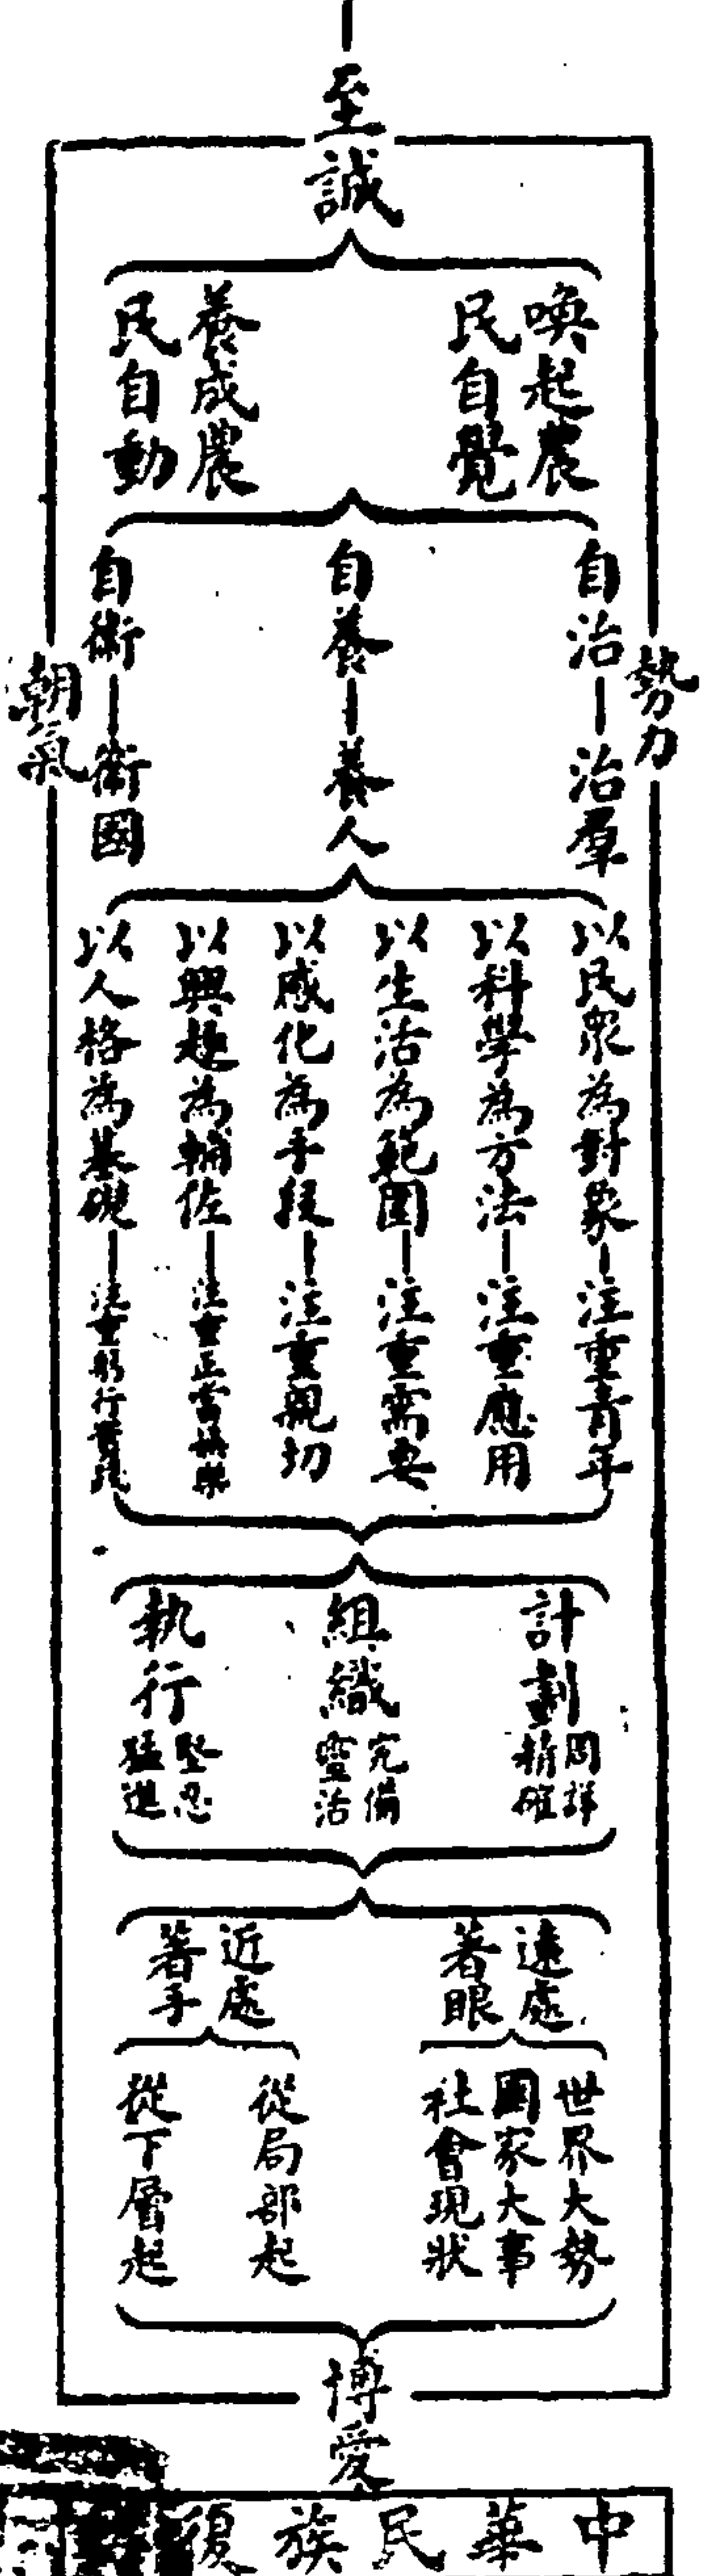 至誠
喚起農
民自覺
養成農
民自動
自治—治羣
自養—養人
自衛—衛國
勢力
朝氣
以民眾為對象—注重青年
以科學為方法—注重應用
以生活為範圍—注重需要
以感化為手段—注重親切
以興趣為輔佐—注重正當娛樂
以人格為基礎—注重躬行實踐
計劃
周詳
精確
組織
完備
靈活
執行
堅忍
猛進
遠處
著眼
近處
著手
世界大勢
國家大事
社會現狀
從局部起
從下層起
博愛
中華民族復